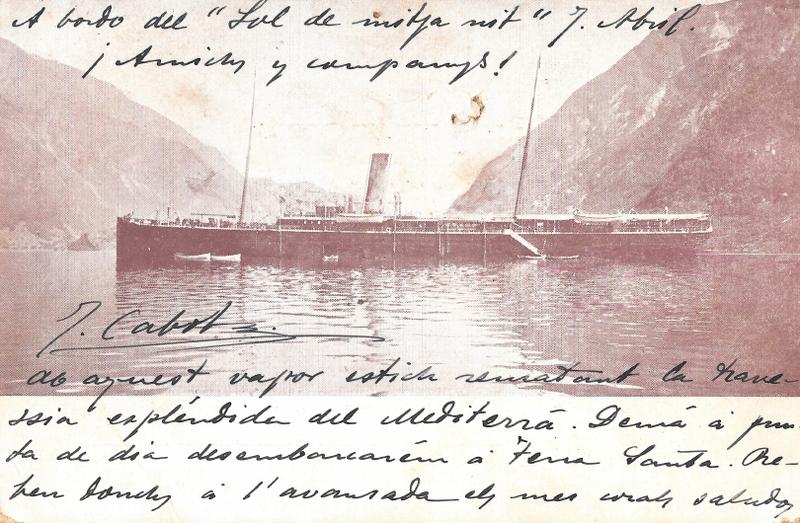 A bordo del "Sol de mitja nit" 7. Abril.
¡Amichs y companys!
J. Cabot
ab aquest vapor estich rematant la trave-
ssia expléndida del Mediterrá. Demá á pun-
ta de dia desembarcarém á Terra Santa. Re-
ben donchs á l'avansada els mes corals saludos